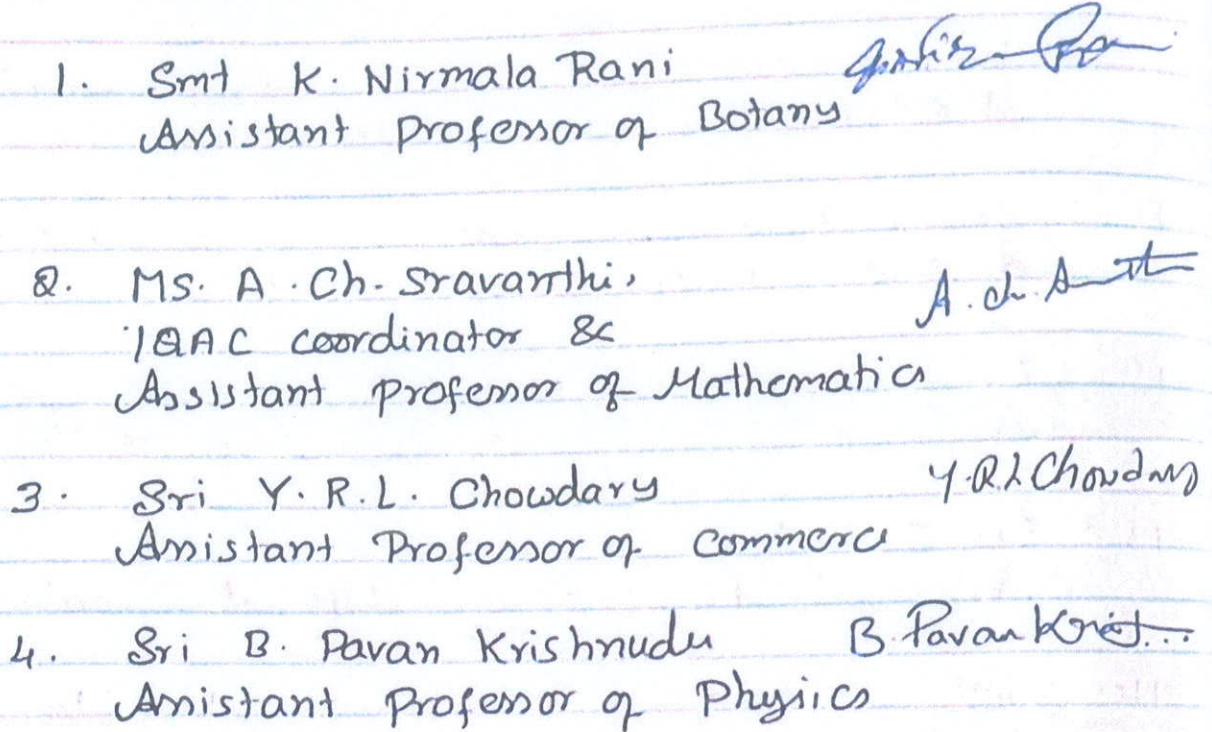 1. Smt K. Nirmala Rani
Assistant Professor of Botany
2. Ms. A. Ch. Sravanthi,
IQAC coordinator &
Assistant Professor of Mathematics
A. ch.
3. Sri Y. R. L. Chowdary Y.R.L Chowdary
Assistant Professor of Commerce
4. Sri B. Pavan Krishnudu B. Pavan
Assistant Professor of Physics